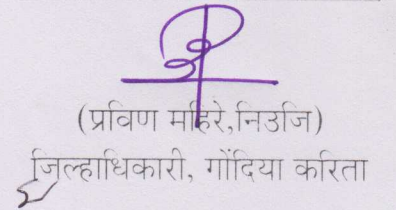 (प्रविण महिरे,निउजि)
जिल्हाधिकारी, गोंदिया करिता